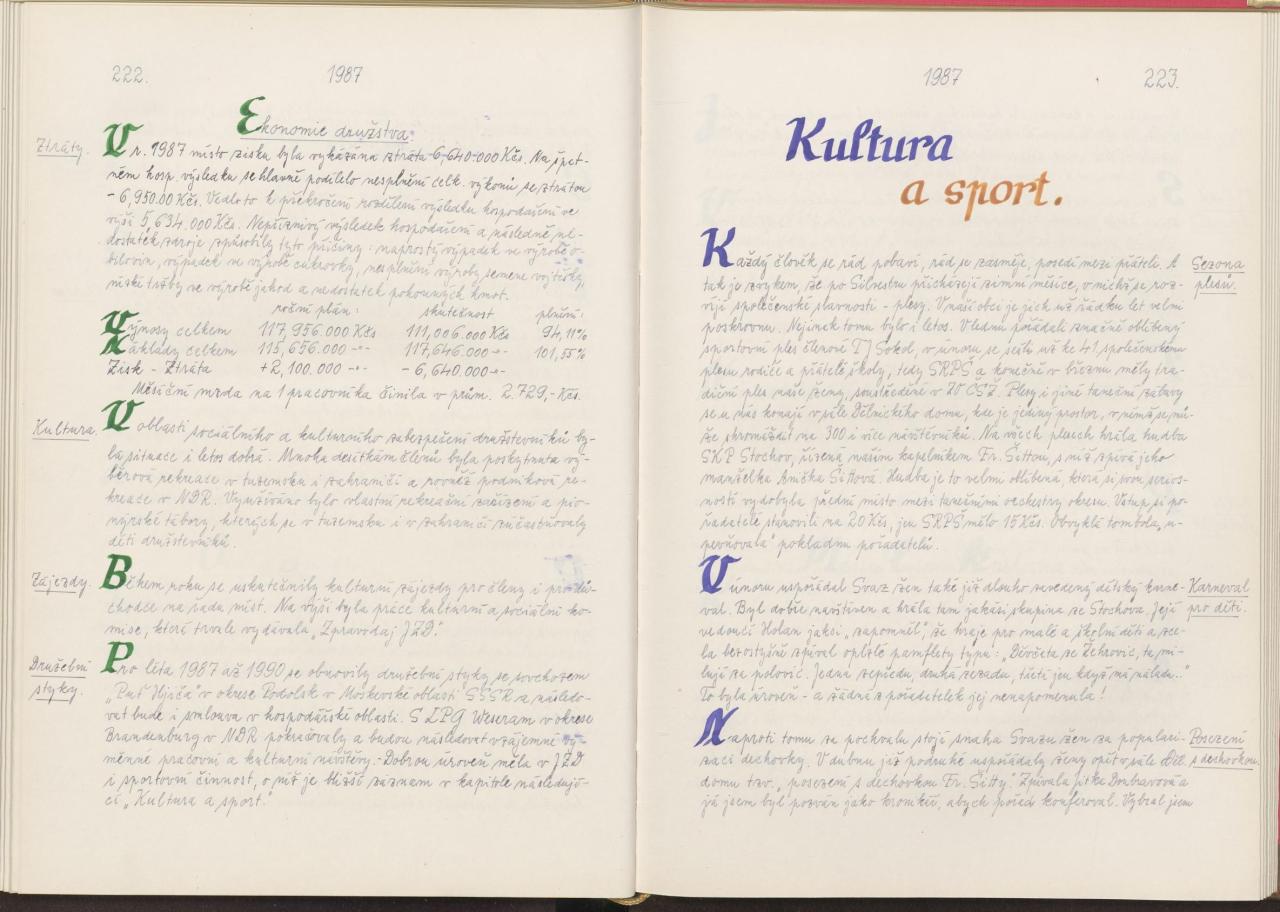 222.
1987
Ekonomie družstva.
Ztráty.
V r. 1987 místo zisku byla vykázána ztráta 6,640.000 Kčs. Na špat-
ném hosp. výsledku se hlavně podílelo nesplnění celk. výkonů se ztrátou
- 6,950.00 Kčs. Vedlo to k překročení rozdělení výsledku hospodaření ve
výši 5,634.000 Kčs. Nepříznivý výsledek hospodaření a následně ne-
dostatek zdroje způsobily tyto příčiny: naprostý výpadek ve výrobě o-
bilovin, výpadek ve výrobě cukrovky, nesplnění výroby semene vojtěšky,
nízké tržby ve výrobě jahod a nedostatek pohonných hmot.
roční plán: skutečnost plnění:
Výnosy celkem 117,956.000 Kčs 111,006.000 Kčs 94,11%
Náklady celkem 115,656.000 -"- 117,646.000 -"- 101,55%
Zisk - Ztráta +2,100.000 -"- - 6,640.000 -"-
Měsíční mzda na 1 pracovníka činila v prům. 2.729,- Kčs.
Kultura.
V oblasti sociálního a kulturního zabezpečení družstevníků by-
la situace i letos dobrá. Mnoha desítkám členů byla poskytnuta vý-
běrová rekreace v tuzemsku i zahraničí a rovněž podniková re-
kreace v NDR. Využíváno bylo vlastní rekreační zařízení a pio-
nýrské tábory, kterých se v tuzemsku i v zahraničí zúčastňovaly
děti družstevníků.
Zájezdy.
Během roku se uskutečnily kulturní zájezdy pro členy i pro dů-
chodce na řadu míst. Na výši byla práce kulturní a sociální ko-
mise, která trvale vydávala „Zpravodaj JZD."
Družební
styky.
Pro léta 1987 až 1990 se obnovily družební styky se sovchozem
„Puť Iljiča" v okrese Podolsk v Moskevské oblasti SSSR a následo-
vat bude i smlouva v hospodářské oblasti. S LPG Weseram v okrese
Brandenburg v NDR pokračovaly a budou následovat vzájemné vý-
měnné pracovní a kulturní návštěvy. - Dobrou úroveň měla v JZD
i sportovní činnost, o níž je bližší záznam v kapitole následují-
cí „Kultura a sport."
1987
223.
Kultura
a sport.
Každý člověk se rád pobaví, rád se zasměje, posedí mezi přáteli. A
Sezona
plesů.
tak je zvykem, že po Silvestru přicházejí zimní měsíce, v nichž se roz-
víjí společenské slavnosti - plesy. V naší obci je jich už řádku let velmi
poskrovnu. Nejinak tomu bylo i letos. V lednu pořádali značně oblíbený
sportovní ples členové TJ Sokol, v únoru se sešli už ke 41. společenskému
plesu rodiče a přátelé školy, tedy SRPŠ a konečně v březnu měly tra-
diční ples naše ženy, soustředěné v ZO ČSŽ. Plesy i jiné taneční zábavy
se u nás konají v sále Dělnického domu, kde je jediný prostor, v němž se mů-
že shromáždit na 300 i více návštěvníků. Na všech plesech hrála hudba
SKP Stochov, řízená naším kapelníkem Fr. Šittou, s níž zpívá jeho
manželka Anička Šittová. Hudba je to velmi oblíbená, která si svou serios-
ností vydobyla přední místo mezi tanečními orchestry okresu. Vstup si po-
řadatelé stanovili na 20 Kčs, jen SRPŠ mělo 15 Kčs. Obvyklá tombola „u-
pevňovala" pokladnu pořadatelů.
V únoru uspořádal Svaz žen také již dlouho zavedený dětský karne-
Karneval
pro děti.
val. Byl dobře navštíven a hrála tam jakási skupina ze Stochova. Její
vedoucí Holan jaksi „zapomněl", že hraje pro malé a školní děti a zce-
la bezostyšně zpíval oplzlé pamflety typu: „Děvčata ze Žehrovic, ta mi-
lují za polovic. Jedna zepředu, druhá zezadu, třetí jen když má náladu.."
To byla úroveň - a žádná z pořadatelek jej nenapomenula!
Naproti tomu za pochvalu stojí snaha Svazu žen za populari-
Posezení
s dechovkou.
zaci dechovky. V dubnu již podruhé uspořádaly ženy opět v sále Děl.
domu tzv. „posezení s dechovkou Fr. Šitty." Zpívala Jitka Doubravová a
já jsem byl pozván jako kronikář, abych pořad konferoval. Vybral jsem